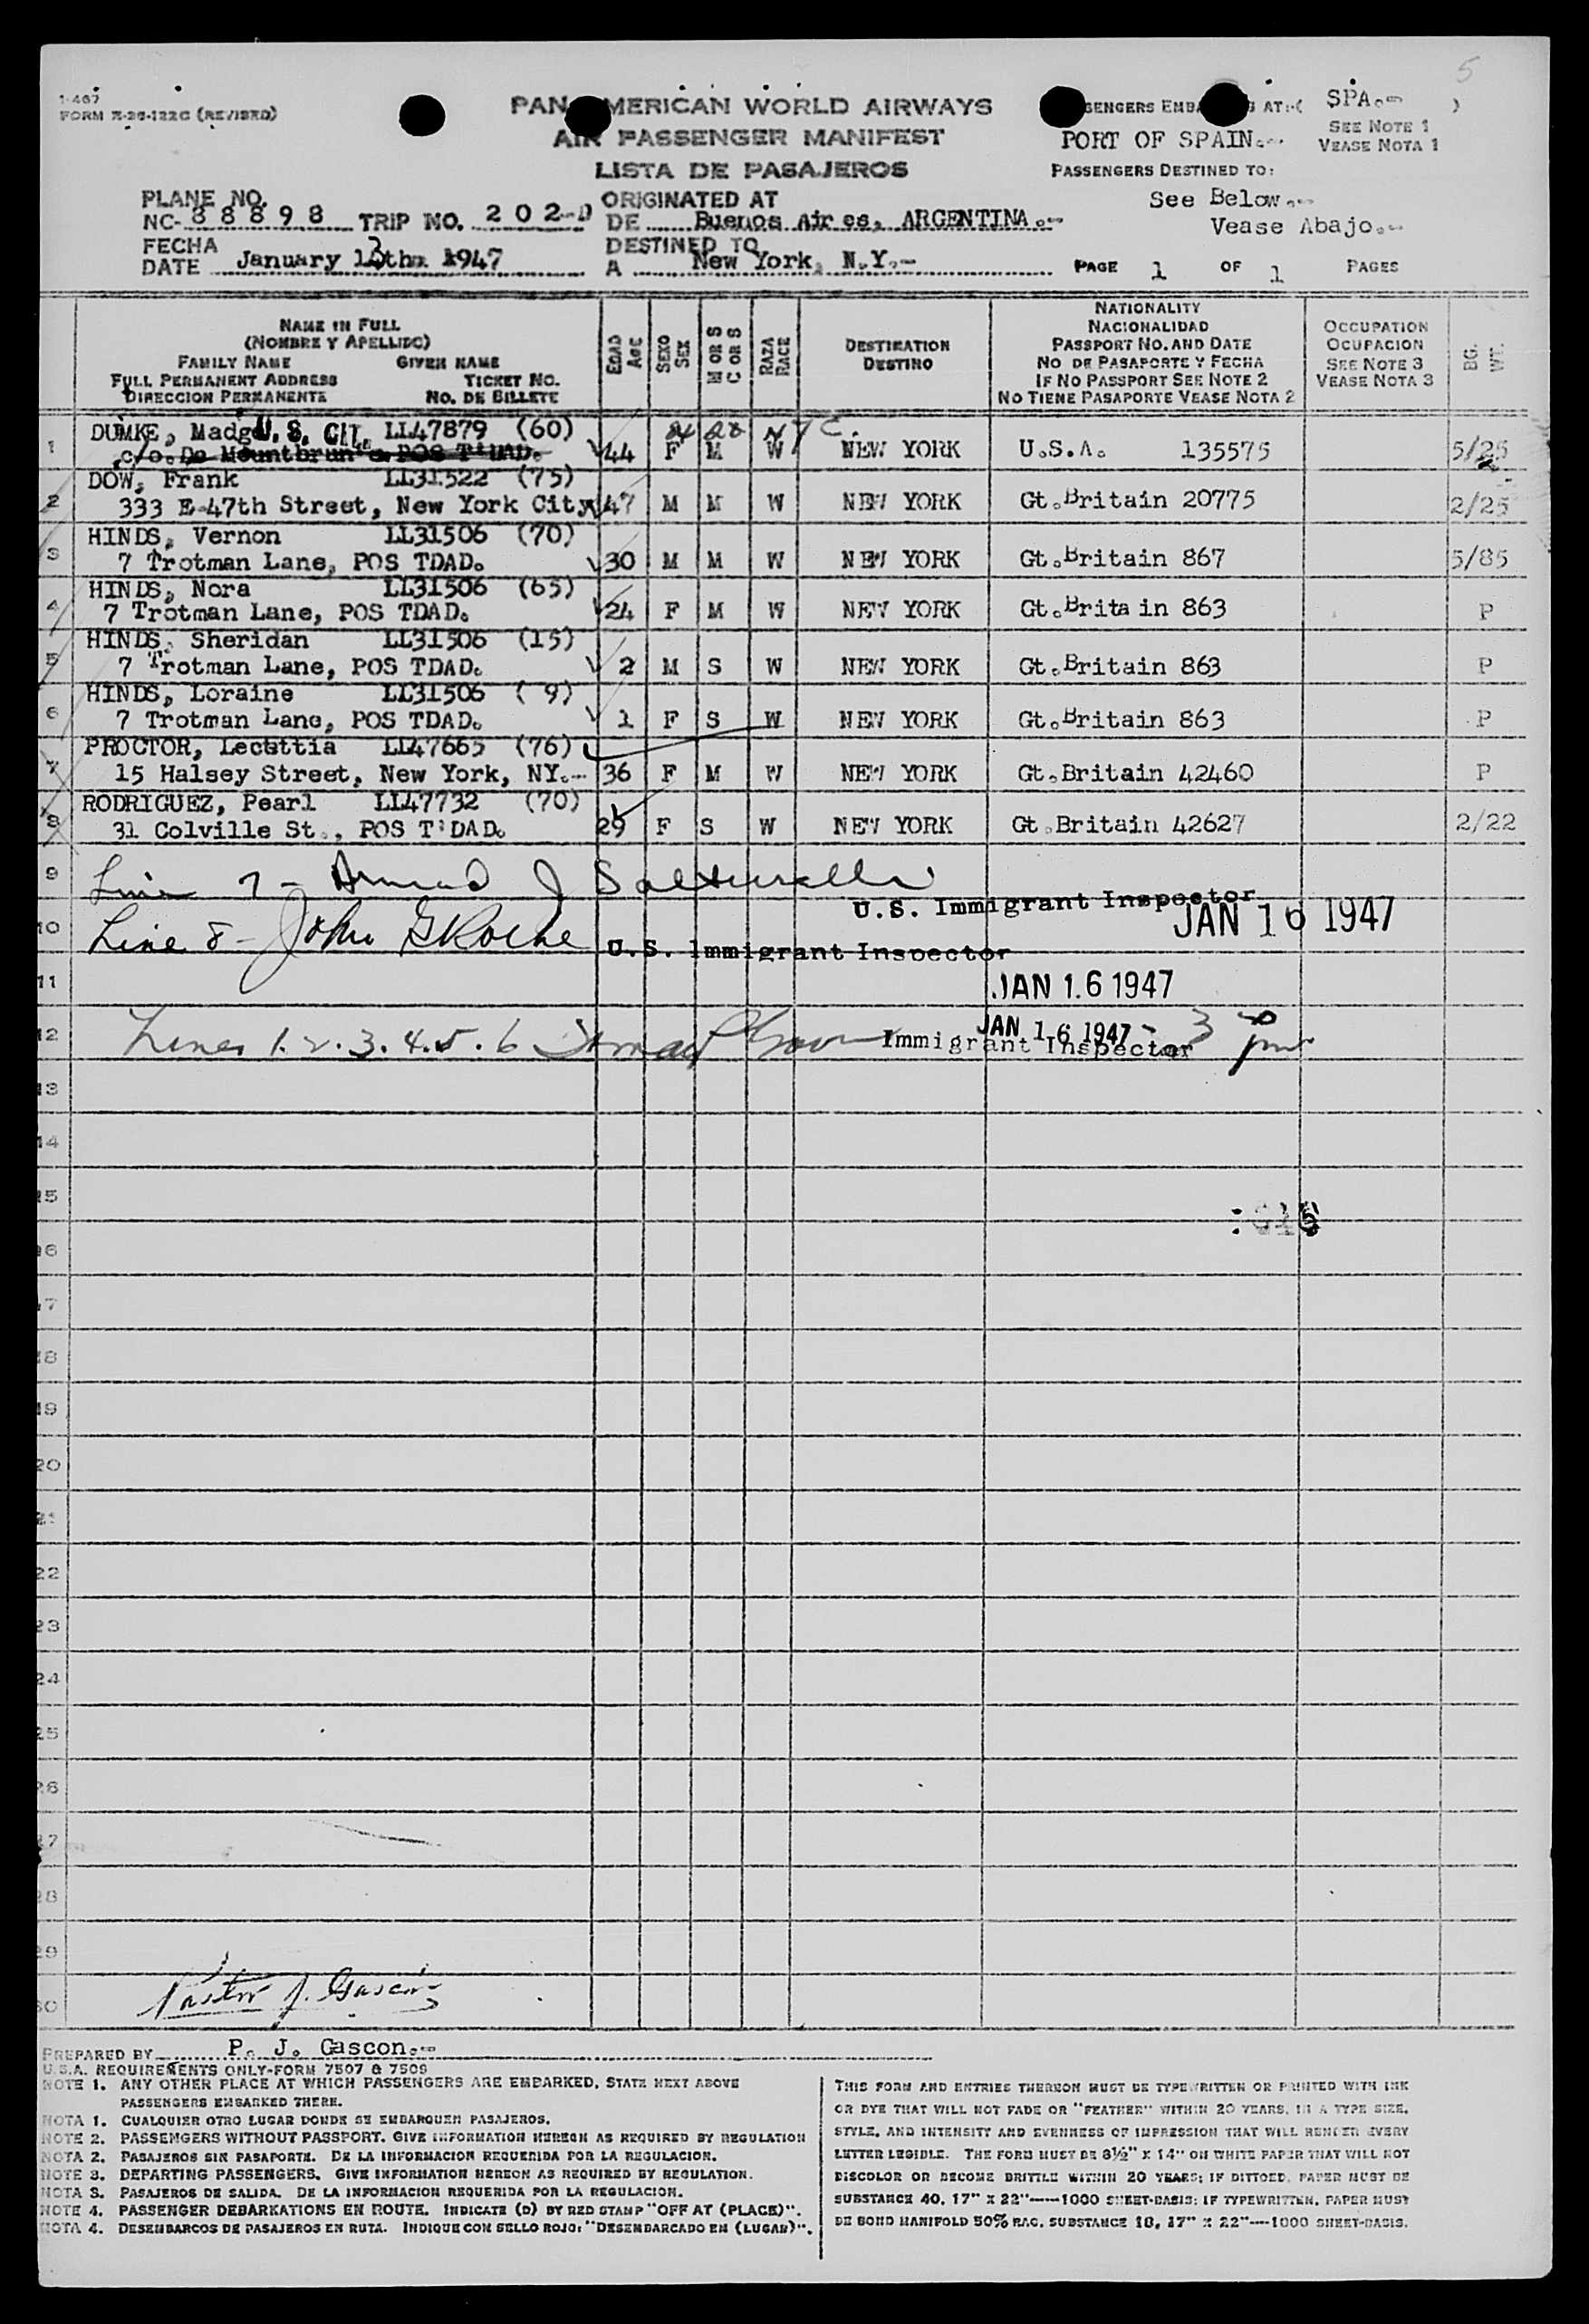 5
1-467
FORM X-26-122C (REVISED)
PAN AMERICAN WORLD AIRWAYS
AIR PASSENGER MANIFEST
LISTA DE PASAJEROS
AT:-( SPA.- )
PORT OF SPAIN.-
SEE NOTE 1
VEASE NOTA 1
PASSENGERS DESTINED TO:
See Below.-
Vease Abajo.-
PLANE NO.
NC- 88898 TRIP NO. 202-D
ORIGINATED AT
DE Buenos Aires, ARGENTINA.-
FECHA
DATE January 13th. 1947
DESTINED TO
A New York, N.Y.-
PAGE 1 OF 1 PAGES
NAME IN FULL
(NOMBRE Y APELLIDO)
FAMILY NAME GIVEN NAME
FULL PERMANENT ADDRESS TICKET NO.
DIRECCION PERMANENTE NO. DE BILLETE
EDAD
AGE
SEXO
SEX
M OR S
C OR S
RAZA
RACE
DESTINATION
DESTINO
NATIONALITY
NACIONALIDAD
PASSPORT NO. AND DATE
NO DE PASAPORTE Y FECHA
IF NO PASSPORT SEE NOTE 2
NO TIENE PASAPORTE VEASE NOTA 2
OCCUPATION
OCUPACION
SEE NOTE 3
VEASE NOTA 3
BG.
WT.
DUMKE, Madge U.S. CIT. LL47879 (60)
N Y C.
1 c/o. De Mountbrun's POS T'DAD. 44 F M W NEW YORK U.S.A. 135575 5/25
DOW, Frank LL31522 (75)
2 333 E-47th Street, New York City 47 M M W NEW YORK Gt.Britain 20775 2/25
HINDS, Vernon LL31506 (70)
3 7 Trotman Lane, POS TDAD. 30 M M W NEW YORK Gt.Britain 867 5/85
HINDS, Nora LL31506 (65)
4 7 Trotman Lane, POS TDAD. 24 F M W NEW YORK Gt.Britain 863 P
HINDS, Sheridan LL31506 (15)
5 7 Trotman Lane, POS TDAD. 2 M S W NEW YORK Gt.Britain 863 P
HINDS, Loraine LL31506 ( 9)
6 7 Trotman Lane, POS TDAD. 1 F S W NEW YORK Gt.Britain 863 P
PROCTOR, Lecettia LL47665 (76)
7 15 Halsey Street, New York, NY.- 36 F M W NEW YORK Gt.Britain 42460 P
RODRIGUEZ, Pearl LL47732 (70)
8 31 Colville St., POS T'DAD. 29 F S W NEW YORK Gt.Britain 42627 2/22
9 Line 7 - J
U.S. Immigrant Inspector
JAN 16 1947
10 Line 8 - John G Roche U.S. Immigrant Inspector
11 JAN 16 1947
12 Lines 1.2.3.4.5.6 Immigrant Inspector JAN 16 1947 - 3 pm
13
14
15
16
17
18
19
20
21
22
23
24
25
26
27
28
29
30 Pastor J. Gascon
PREPARED BY P. J. Gascon.-
U.S.A. REQUIREMENTS ONLY-FORM 7507 & 7509
NOTE 1. ANY OTHER PLACE AT WHICH PASSENGERS ARE EMBARKED, STATE NEXT ABOVE
PASSENGERS EMBARKED THERE.
NOTA 1. CUALQUIER OTRO LUGAR DONDE SE EMBARQUEN PASAJEROS.
NOTE 2. PASSENGERS WITHOUT PASSPORT. GIVE INFORMATION HEREON AS REQUIRED BY REGULATION
NOTA 2. PASAJEROS SIN PASAPORTE. DE LA INFORMACION REQUERIDA POR LA REGULACION.
NOTE 3. DEPARTING PASSENGERS. GIVE INFORMATION HEREON AS REQUIRED BY REGULATION.
NOTA 3. PASAJEROS DE SALIDA. DE LA INFORMACION REQUERIDA POR LA REGULACION.
NOTE 4. PASSENGER DEBARKATIONS EN ROUTE. INDICATE (D) BY RED STAMP "OFF AT (PLACE)".
NOTA 4. DESEMBARCOS DE PASAJEROS EN RUTA. INDIQUE CON SELLO ROJO: "DESEMBARCADO EN (LUGAR)".
THIS FORM AND ENTRIES THEREON MUST BE TYPEWRITTEN OR PRINTED WITH INK
OR DYE THAT WILL NOT FADE OR "FEATHER" WITHIN 20 YEARS, IN A TYPE SIZE,
STYLE, AND INTENSITY AND EVENNESS OF IMPRESSION THAT WILL RENDER EVERY
LETTER LEGIBLE. THE FORM MUST BE 8½" X 14" ON WHITE PAPER THAT WILL NOT
DISCOLOR OR BECOME BRITTLE WITHIN 20 YEARS; IF DITTOED, PAPER MUST BE
SUBSTANCE 40, 17" X 22"----1000 SHEET-BASIS; IF TYPEWRITTEN, PAPER MUST
BE BOND MANIFOLD 50% RAG, SUBSTANCE 18, 17" X 22"---1000 SHEET-BASIS.